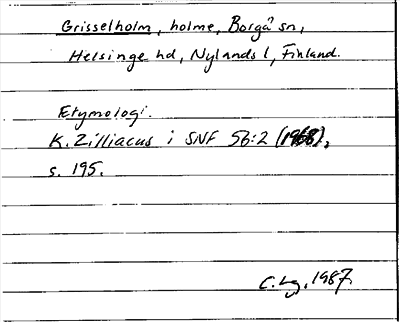 Grisselholm, holme, Borgå sn,
Helsinge hd, Nylands l, Finland.
Etymologi.
K. Zilliacus i SNF 56:2 (1968),
s. 195.
C. Lg, 1987